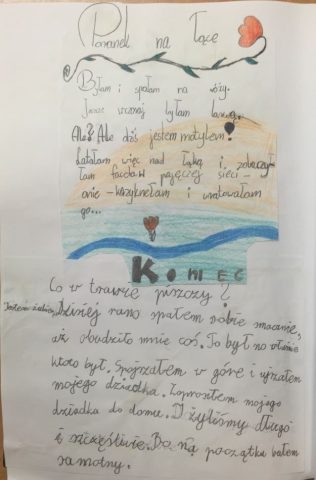 Poranek na łące
Byłam i spałam na róży.
Jeszcze wczoraj byłam larwą.
Ale? Ale dziś jestem motylem!
Latałam więc nad łąką i zobaczy-
łam faceta w pajęczej sieci-
onie - krzyknęłam i uratowałam
go...
KONIEC
Co w trawie piszczy?
Jestem żabią. Dzisiej rano spałem sobie smacznie,
aż obudziło mnie coś. To był no właśnie
kto to był. Spojrzałem w górę i ujrzałem
mojego dziadka. Zaprosiłem mojego
dziadka do domu. I żyliśmy długo
i szczęśliwie. Bo na początku byłem
samotny.